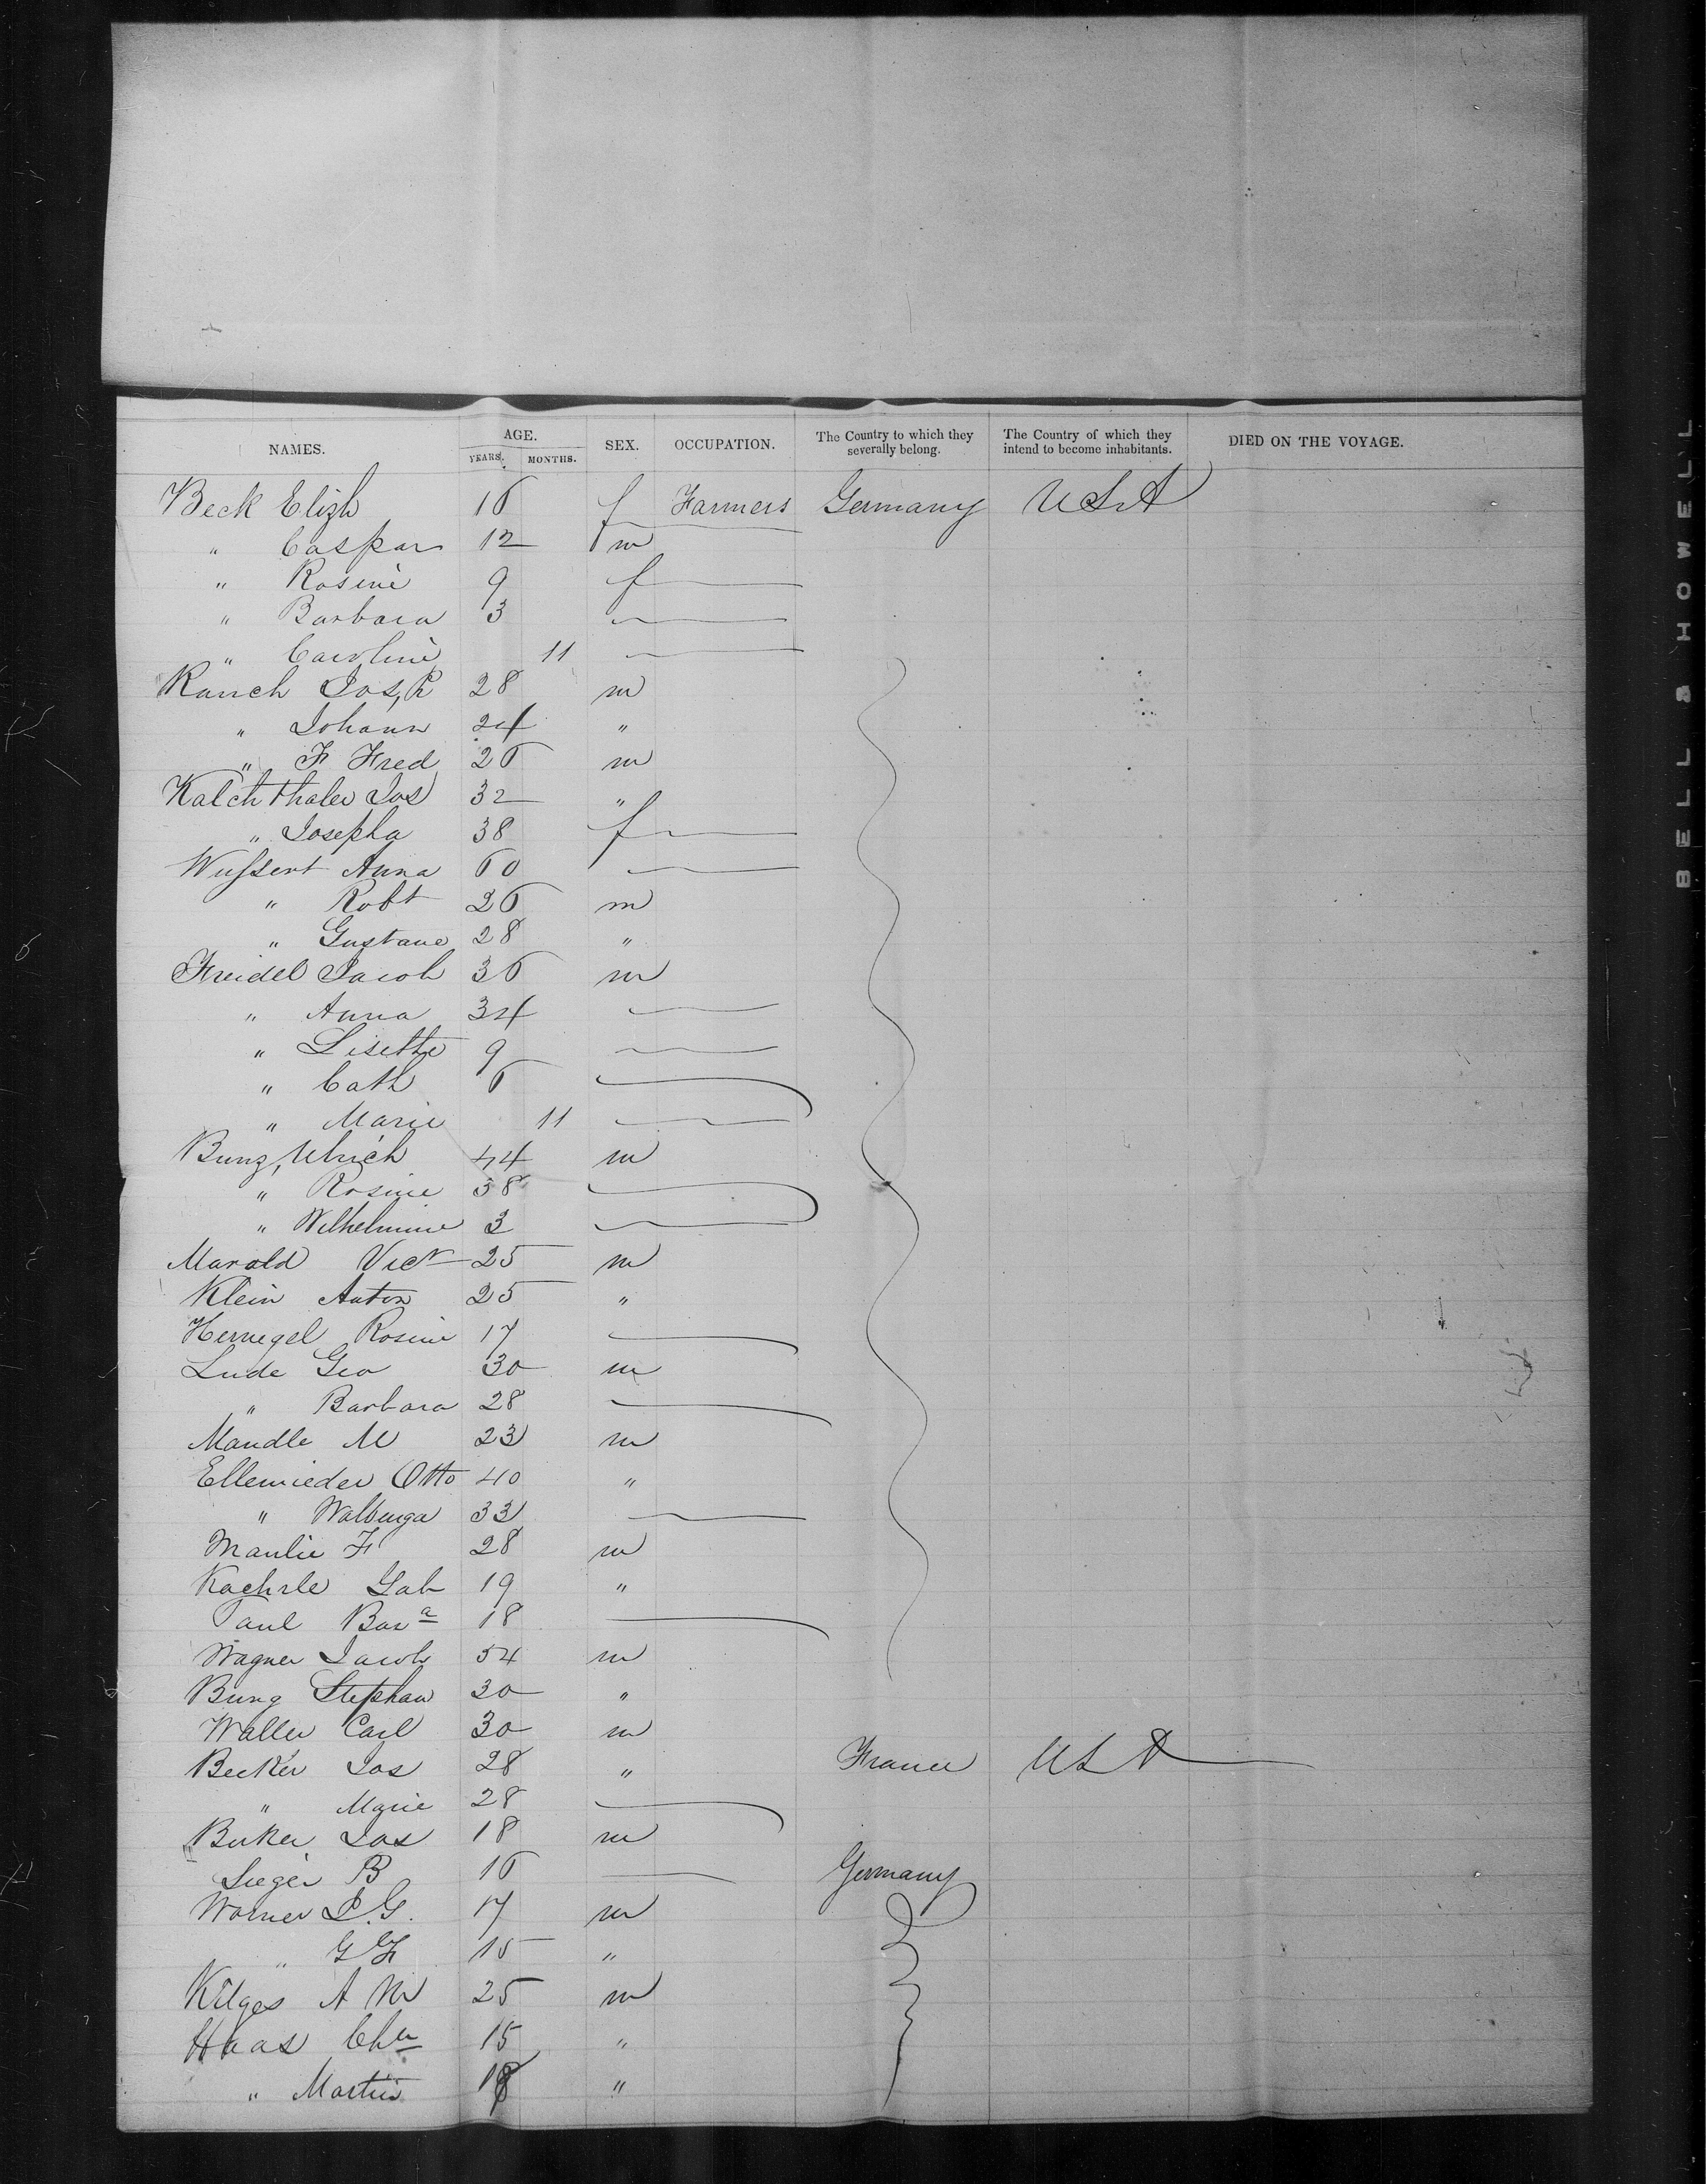 NAMES. AGE. YEARS. MONTHS. SEX. OCCUPATION. The Country to which they severally belong. The Country of which they intend to become inhabitants. DIED ON THE VOYAGE.
Beck Elizh 16 f Farmers Germany USA
" Caspar 12 m
" Rosine 9 f
" Barbara 3
" Caroline 11
Rauch Jos, R 28 m
" Johann 24 "
" F Fred 26 m
Kalchthaler Jos 32 "
" Josepha 38 f
Wussert Anna 60
" Robt 26 m
" Gustave 28 "
Freidel Jacob 36 m
" Anna 34
" Lisette 9
" Cath 6
" Marie 11
Bunz, Ulrich 44 m
" Rosine 38
" Wilhelmine 3
Marold Vict 25 m
Klein Anton 25 "
Hernegel Rosine 17
Lude Geo 30 m
" Barbara 28
Mandle M 23 m
Ellenrieder Otto 40 "
" Walburga 33
Manlie F 28 m
Kaehrle Gab 19 "
Paul Bara 18
Wagner Jacob 54 m
Bung Stephan 30 "
Waller Carl 30 m
Becker Jos 28 " France USA
" Marie 28
Becker Jos 18 m
Sieger B 16 Germany
Worner J. G. 17 m
" G F 15 "
Kilges A M 25 m
Haas Chn 15 "
" Martin 18 "
BELL & HOWELL